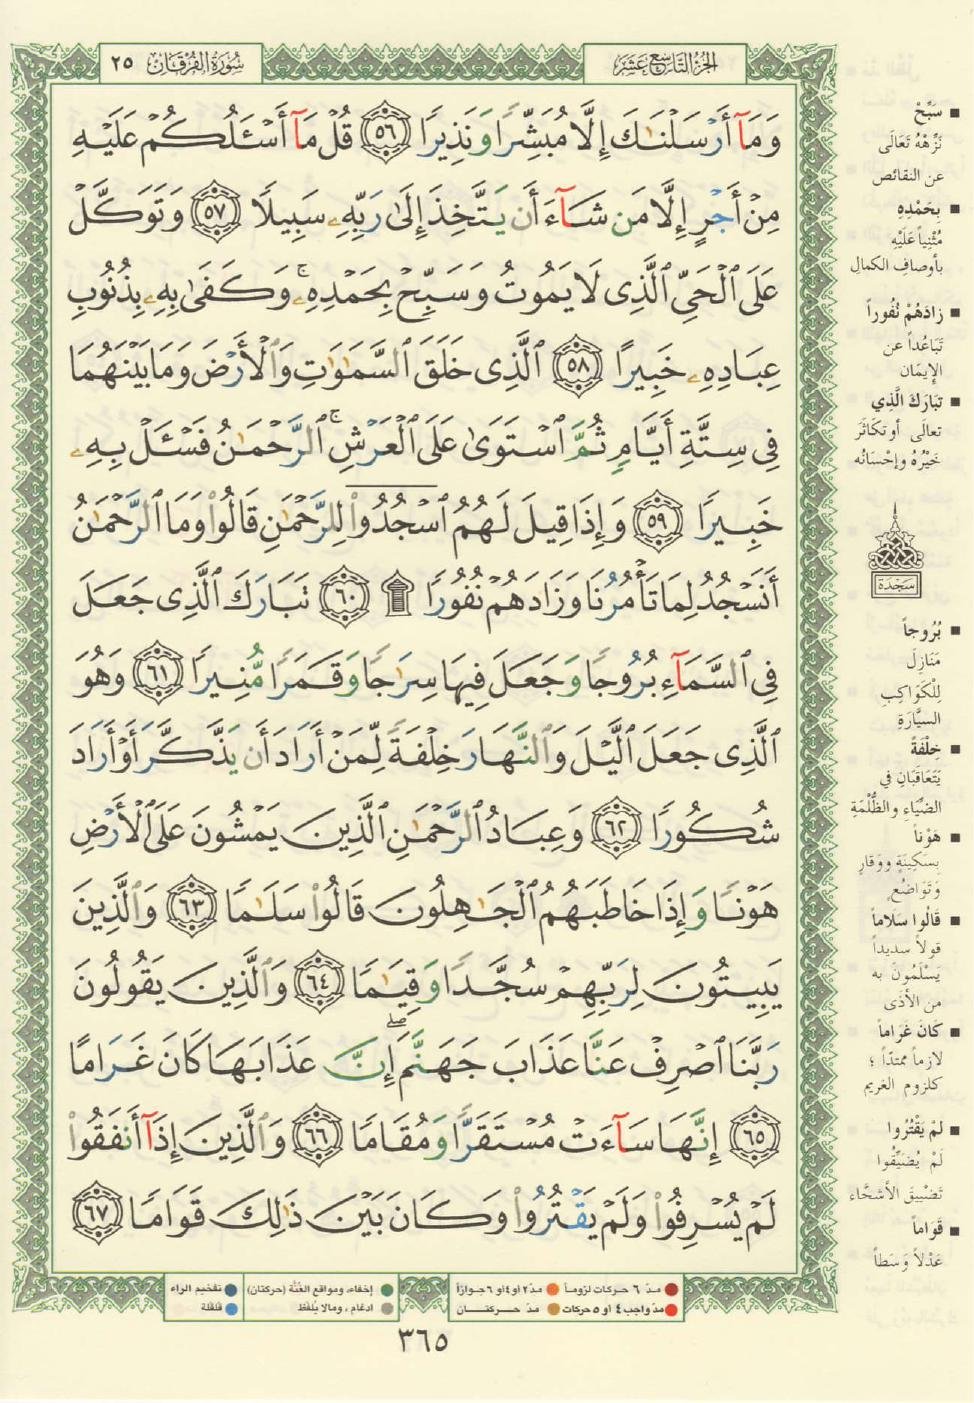 الجزء التاسع عشر
سورة الفرقان ٢٥
وَمَآ أَرْسَلْنَٰكَ إِلَّا مُبَشِّرًا وَنَذِيرًا ٥٦ قُلْ مَآ أَسْـَٔلُكُمْ عَلَيْهِ
مِنْ أَجْرٍ إِلَّا مَن شَآءَ أَن يَتَّخِذَ إِلَىٰ رَبِّهِۦ سَبِيلًا ٥٧ وَتَوَكَّلْ
عَلَى ٱلْحَىِّ ٱلَّذِى لَا يَمُوتُ وَسَبِّحْ بِحَمْدِهِۦ ۚ وَكَفَىٰ بِهِۦ بِذُنُوبِ
عِبَادِهِۦ خَبِيرًا ٥٨ ٱلَّذِى خَلَقَ ٱلسَّمَٰوَٰتِ وَٱلْأَرْضَ وَمَا بَيْنَهُمَا
فِى سِتَّةِ أَيَّامٍ ثُمَّ ٱسْتَوَىٰ عَلَى ٱلْعَرْشِ ۚ ٱلرَّحْمَٰنُ فَسْـَٔلْ بِهِۦ
خَبِيرًا ٥٩ وَإِذَا قِيلَ لَهُمُ ٱسْجُدُوا۟ لِلرَّحْمَٰنِ قَالُوا۟ وَمَا ٱلرَّحْمَٰنُ
أَنَسْجُدُ لِمَا تَأْمُرُنَا وَزَادَهُمْ نُفُورًا ۩ ٦٠ تَبَارَكَ ٱلَّذِى جَعَلَ
فِى ٱلسَّمَآءِ بُرُوجًا وَجَعَلَ فِيهَا سِرَٰجًا وَقَمَرًا مُّنِيرًا ٦١ وَهُوَ
ٱلَّذِى جَعَلَ ٱلَّيْلَ وَٱلنَّهَارَ خِلْفَةً لِّمَنْ أَرَادَ أَن يَذَّكَّرَ أَوْ أَرَادَ
شُكُورًا ٦٢ وَعِبَادُ ٱلرَّحْمَٰنِ ٱلَّذِينَ يَمْشُونَ عَلَى ٱلْأَرْضِ
هَوْنًا وَإِذَا خَاطَبَهُمُ ٱلْجَٰهِلُونَ قَالُوا۟ سَلَٰمًا ٦٣ وَٱلَّذِينَ
يَبِيتُونَ لِرَبِّهِمْ سُجَّدًا وَقِيَٰمًا ٦٤ وَٱلَّذِينَ يَقُولُونَ
رَبَّنَا ٱصْرِفْ عَنَّا عَذَابَ جَهَنَّمَ ۖ إِنَّ عَذَابَهَا كَانَ غَرَامًا
٦٥ إِنَّهَا سَآءَتْ مُسْتَقَرًّا وَمُقَامًا ٦٦ وَٱلَّذِينَ إِذَآ أَنفَقُوا۟
لَمْ يُسْرِفُوا۟ وَلَمْ يَقْتُرُوا۟ وَكَانَ بَيْنَ ذَٰلِكَ قَوَامًا ٦٧
■ سَبِّحْ
نَزِّهْهُ تَعَالَى
عن النقائص
■ بِحَمْدِهِ
مُثْنِياً عَلَيْهِ
بأوصافِ الكمالِ
■ زادَهُمْ نُفُوراً
تَبَاعُداً عن
الإيمَان
■ تبَارَكَ الَّذِي
تعالَى أو تكاثَرَ
خَيْرُهُ وإحْسَانُه
سَجْدَة
■ بُرُوجاً
مَنَازِلَ
لِلْكَوَاكِبِ
السيَّارَةِ
■ خِلْفَةً
يَتَعَاقَبَانِ في
الضِّيَاءِ والظُّلْمَةِ
■ هَوْناً
بِسَكِينَةٍ ووَقَارٍ
وَتَوَاضُعٍ
■ قَالُوا سَلَاماً
قولاً سديداً
يَسْلَمُونَ به
من الأذَى
■ كانَ غَرَاماً
لازماً ممتدّاً ؛
كلزوم الغريم
■ لمْ يَقْتُرُوا
لَمْ يُضَيِّقُوا
تَضْيِيقَ الأشحَّاء
■ قَوَاماً
عَدْلاً وَسَطاً
مدّ ٦ حركات لزوماً مدّ ٢ او ٤ او ٦ جوازاً إخفاء، ومواقع الغنّة (حركتان) تفخيم الراء
مدّ واجب ٤ او ٥ حركات مدّ حركتان ادغام ، ومالا يُلفَظ قلقلة
٣٦٥